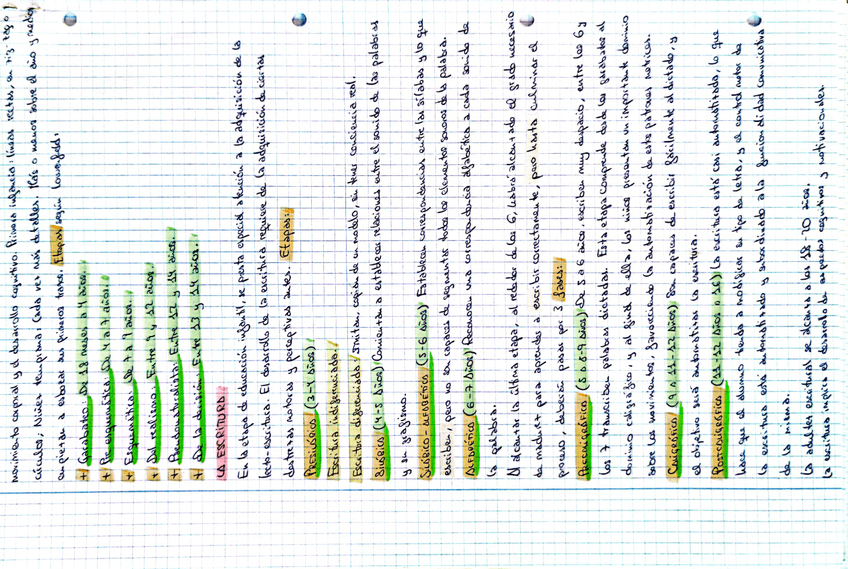 movimiento corporal y el desarrollo cognitivo. Primera infancia: líneas rectas, en zig zag o
círculos; Niñez temprana: Cada vez más detalles. Más o menos sobre el año y medio,
empiezan a elaborar sus primeros trazos. Etapas según Lowenfeld:
+ Garabateo. De 18 meses a 4 años.
+ Pre esquemática. De 4 a 7 años.
+ Esquemática. De 7 a 9 años.
+ Del realismo. Entre 9 y 12 años.
+ Pseudonaturalista. Entre 12 y 14 años.
+ De la decisión. Entre 13 y 14 años.
LA ESCRITURA.
En la etapa de educación infantil, se presta especial atención a la adquisición de la
lecto-escritura. El desarrollo de la escritura requiere de la adquisición de ciertas
destrezas motoras y perceptivas antes. Etapas:
PRESILÁBICO (3-4 años):
Escritura indiferenciada.
Escritura diferenciada. Imitan, copian de un modelo, sin tener conciencia real.
SILÁBICO (4-5 años) Comienzan a establecer relaciones entre el sonido de las palabras
y su grafismo.
SILÁBICO-ALFABÉTICO (5-6 años) Establecen correspondencias entre las sílabas y lo que
escriben, pero no son capaces de segmentar todos los elementos sonoros de la palabra.
ALFABÉTICO (6-7 años) Reconocen una correspondencia alfabética a cada sonido de
la palabra.
Al alcanzar la última etapa, al rededor de los 6, habrá alcanzado el grado necesario
de madurez para aprender a escribir correctamente, pero hasta culminar el
proceso, deberán pasar por 3 fases:
PRECALIGRÁFICO (5 a 8-9 años) De 5 a 6 años, escriben muy despacio, entre los 6 y
los 7 transcriben palabras dictadas. Esta etapa comprende desde los garabatos al
dominio caligráfico, y al final de ella, los niños presentan un importante dominio
sobre los movimientos, favoreciendo la automatización de estos patrones motrices.
CALIGRÁFICO (9 a 11-12 años) Son capaces de escribir fácilmente al dictado, y
el objetivo será automatizar la escritura.
POSTCALIGRÁFICO (11-12 años a 16) La escritura está casi automatizada, lo que
hace que el alumno tienda a modificar su tipo de letra, y el control motor de
la escritura está automatizado y subordinado a la funcionalidad comunicativa
de la misma.
La adultez escritural se alcanza a los 18-20 años.
La escritura implica el desarrollo de aspectos cognitivos y motivacionales.